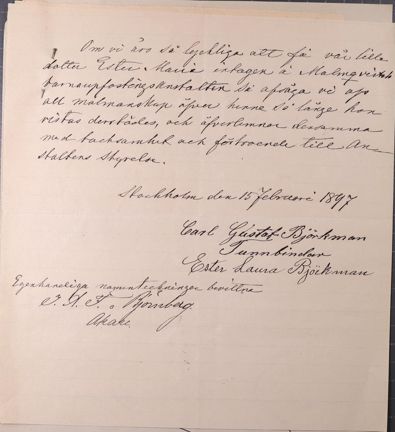 Om vi äro så lyckliga att få vår lilla
dotter Ester Maria intagen å Malmqvistska
barnuppfostringsanstalten så afsäga vi oss
all målsmanskap öfver henne så länge hon
vistas derstädes, och öfverlemnar densamma
med tacksamhet och förtroende till An-
staltens Styrelse.
Stockholm den 15 Februari 1897
Carl Gustaf Björkman
Tunnbindar
Ester Laura Björkman
Egenhändiga namnteckningar bevittna
Björnberg
Åkare